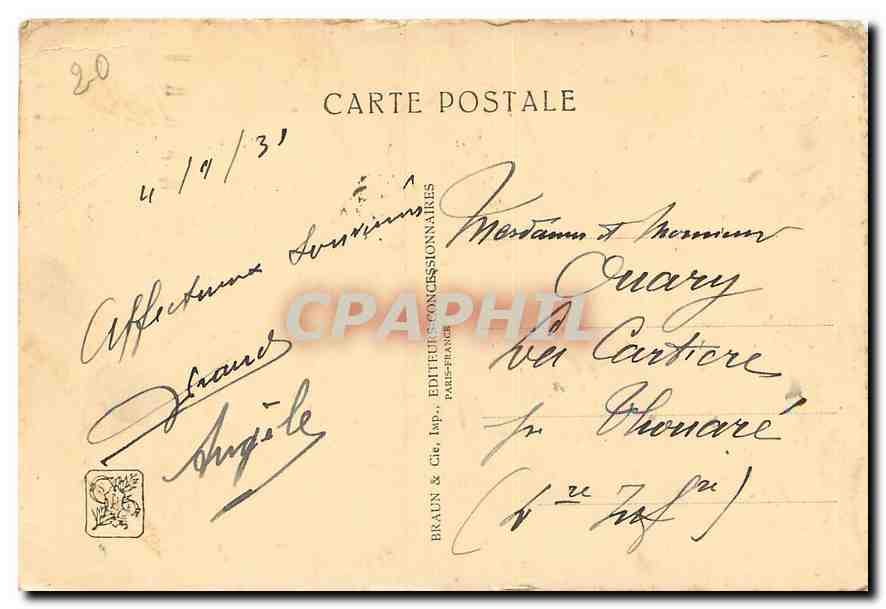 20
CARTE POSTALE
4/9/31
Affectueux souvenirs
Angèle
BRAUN & Cie, Imp., EDITEURS-CONCESSIONNAIRES
PARIS-FRANCE
CPAPHIL
Mesdames et Monsieur
Ouary
La Cartiere
pr Thouaré
(Lre Infre)